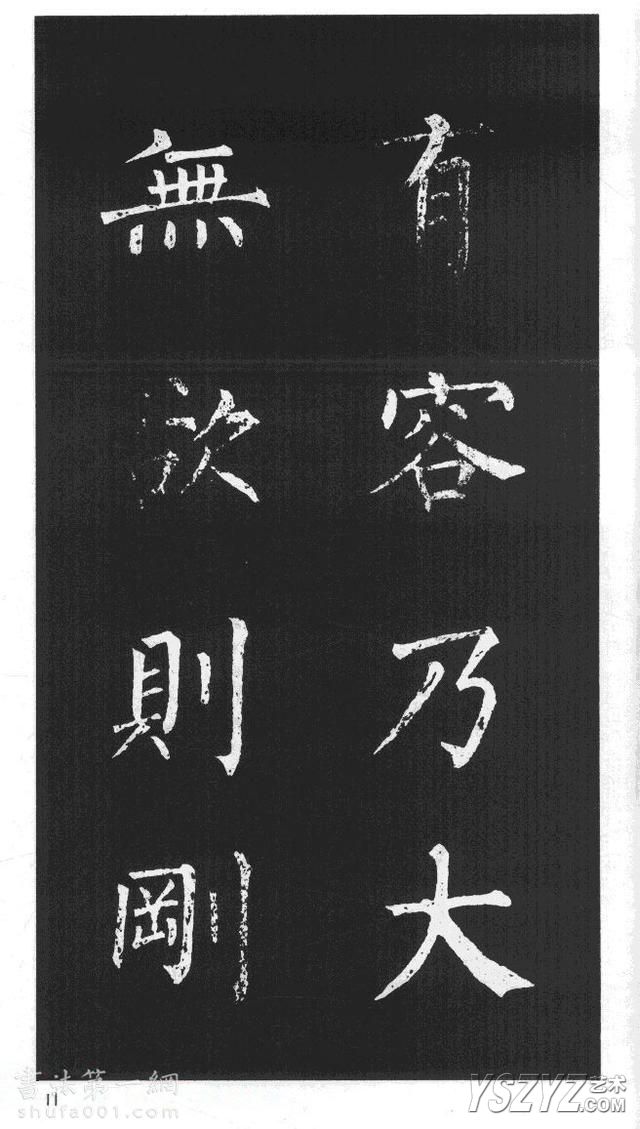 有容乃大
無欲則剛
書法第一網
shufa001.com
11
YSZYZ艺术
.COM